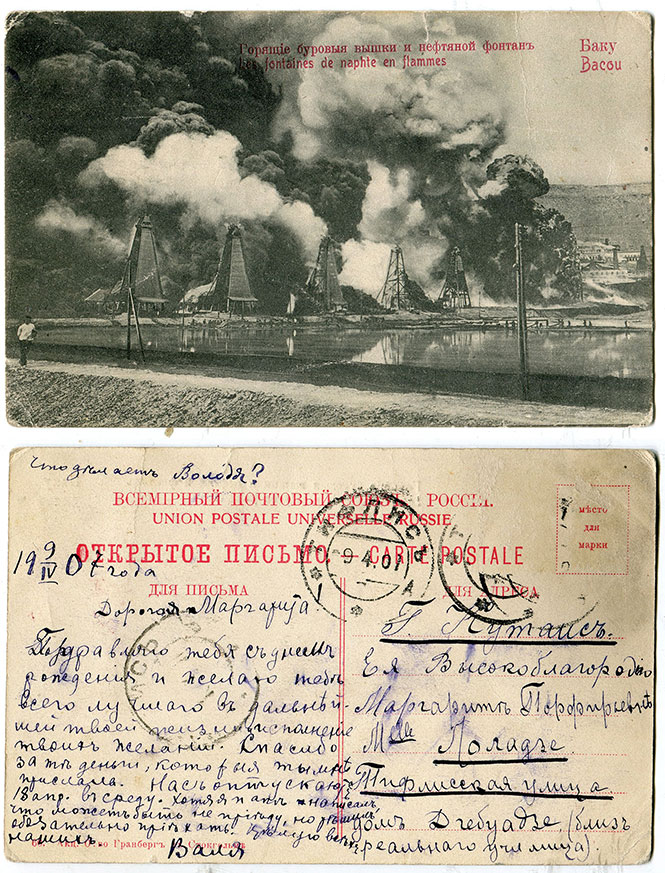 Горящіе буровыя вышки и нефтяной фонтанъ
Баку
Les fontaines de naphte en flammes
Bacou
Что дѣлаетъ Володя?
ВСЕМІРНЫЙ ПОЧТОВЫЙ СОЮЗЪ. РОССІЯ.
UNION POSTALE UNIVERSELLE RUSSIE
19 9/IV 07 года
ОТКРЫТОЕ ПИСЬМО. — CARTE POSTALE
мѣсто
для
марки
ТИФЛИСЪ
9.4.07
ДЛЯ ПИСЬМА
ДЛЯ АДРЕСА
Дорогая Маргарита!
Поздравляю тебя съ днемъ
рожденія и желаю тебѣ
всего лучшаго въ дальнѣй-
шей твоей жизни исполненіе
твоихъ желаній. Спасибо
за тѣ деньги, которыя ты мнѣ
прислала. Насъ отпускаютъ
18 апр. въ среду. Хотя я папѣ написалъ
что можетъ быть не пріѣду, но
обязательно пріѣхать. Цѣлую всѣхъ
нашихъ. Валя
Г. Кутаисъ.
Ея Высокоблагородію
Маргаритѣ Порфирьевнѣ
Mlle Лоладзе.
Тифлисская улица
домъ Дгебуадзе, (близъ
реальнаго училища).
Акц. О-во Гранбергъ Стокгольмъ